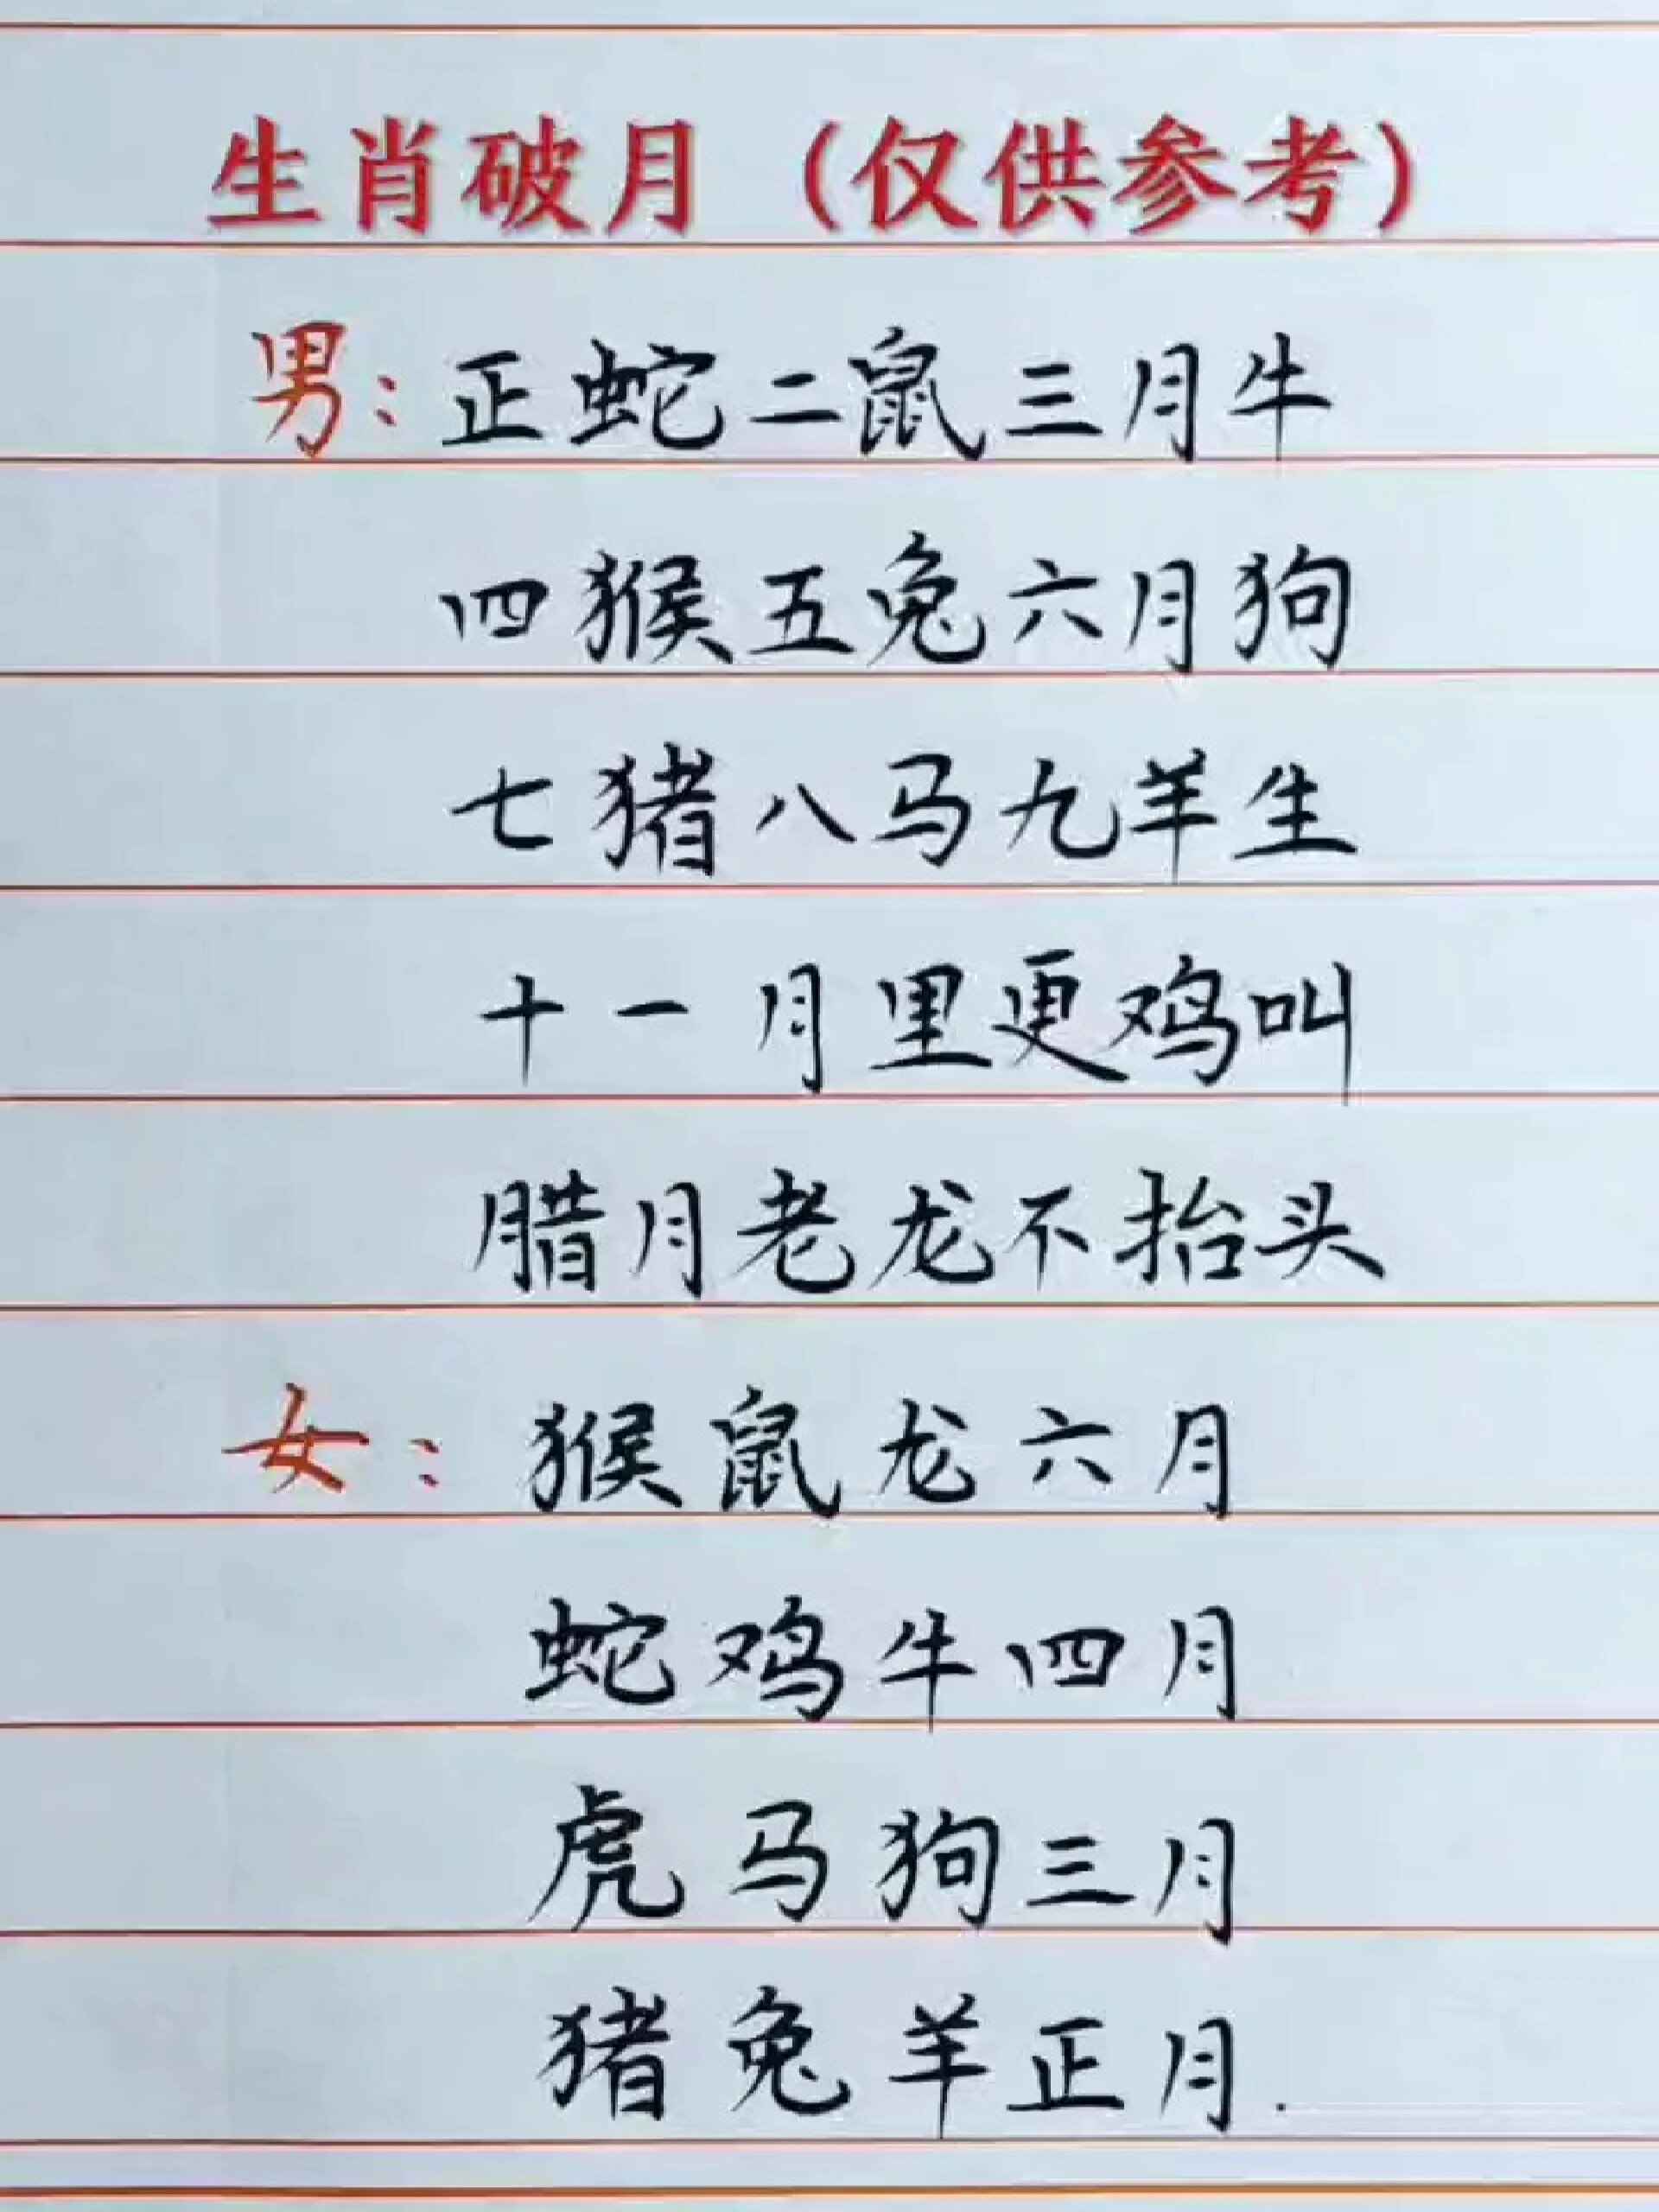 生肖破月（仅供参考）
男：正蛇二鼠三月牛
四猴五兔六月狗
七猪八马九羊生
十一月里更鸡叫
腊月老龙不抬头
女：猴鼠龙六月
蛇鸡牛四月
虎马狗三月
猪兔羊正月.